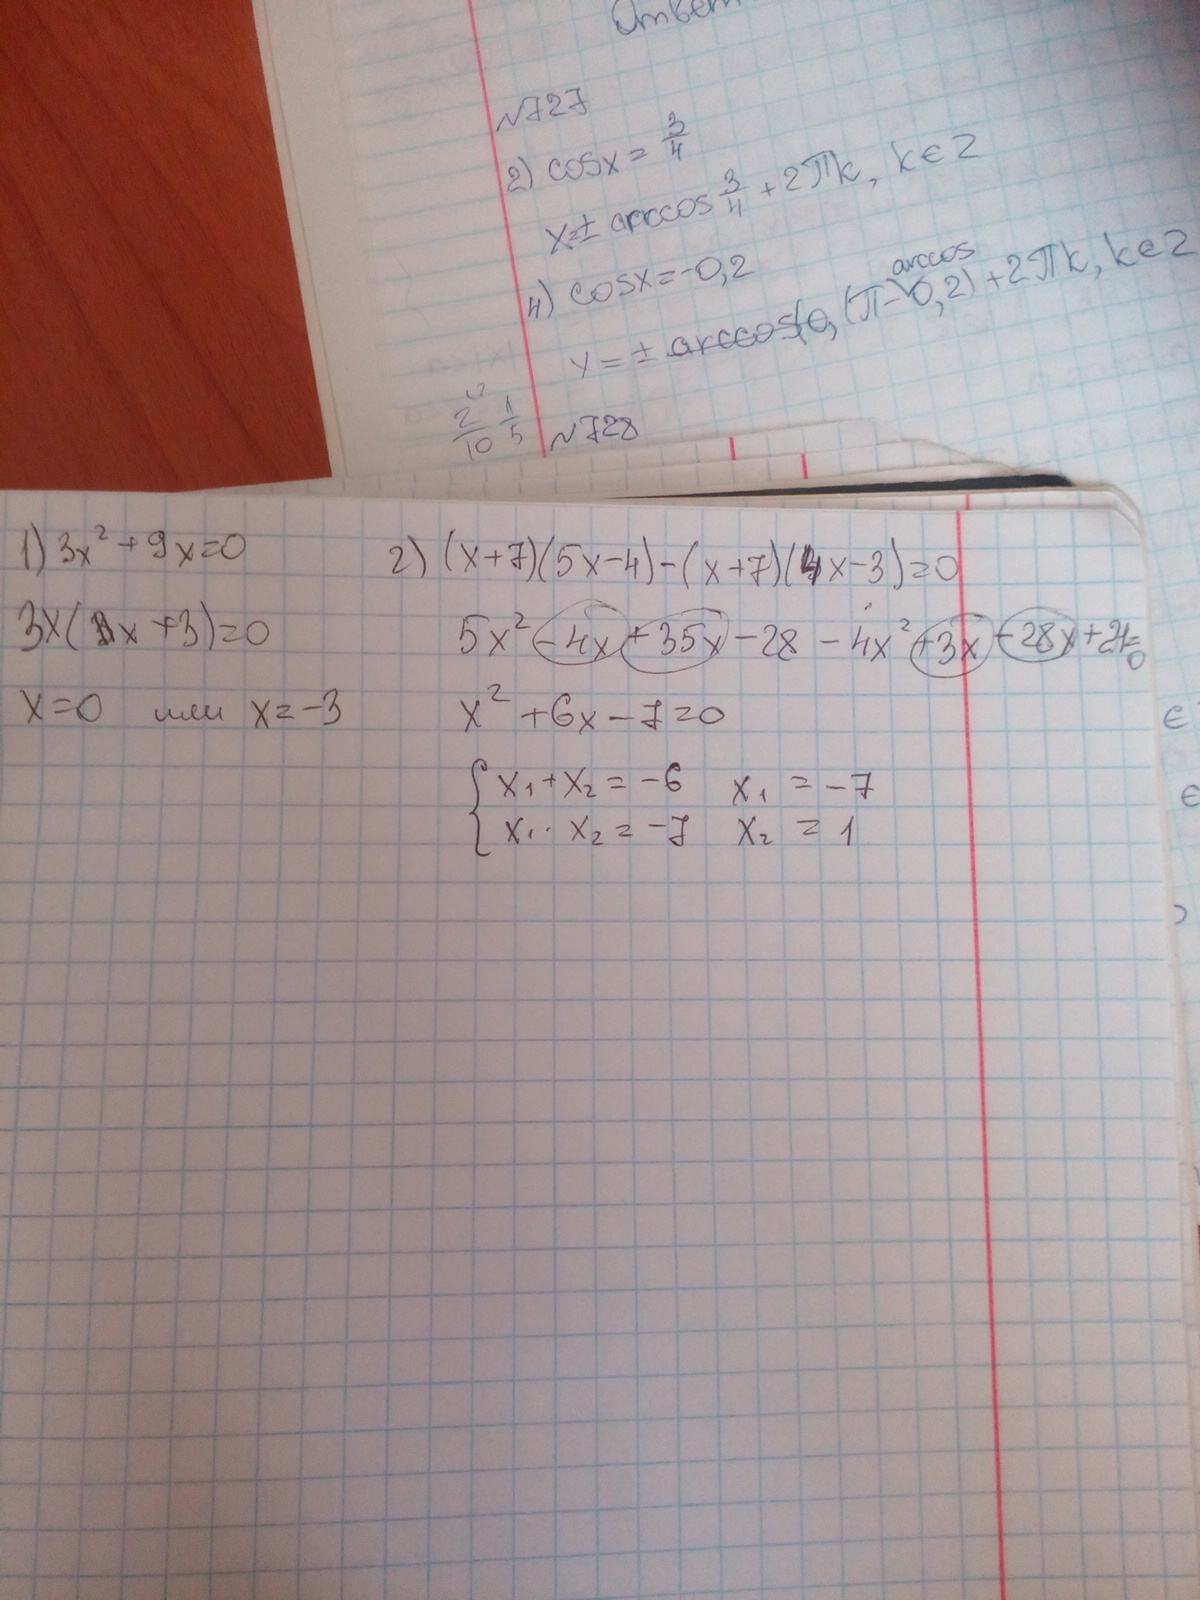 Ответ
№727
2) cosx = 3/4
x=± arccos 3/4 + 2πk, k∈Z
4) cosx=-0,2
y = ± (π- arccos 0,2) + 2πk, k∈Z
2/10 1/5
№728
1) 3x² + 9x=0
3x(x+3)=0
x=0 или x=-3
2) (x+7)(5x-4)-(x+7)(4x-3)=0
5x² -4x +35x -28 -4x² +3x -28x +21=0
x² +6x -7=0
{ x₁+x₂ = -6 x₁ = -7
x₁ · x₂ = -7 x₂ = 1